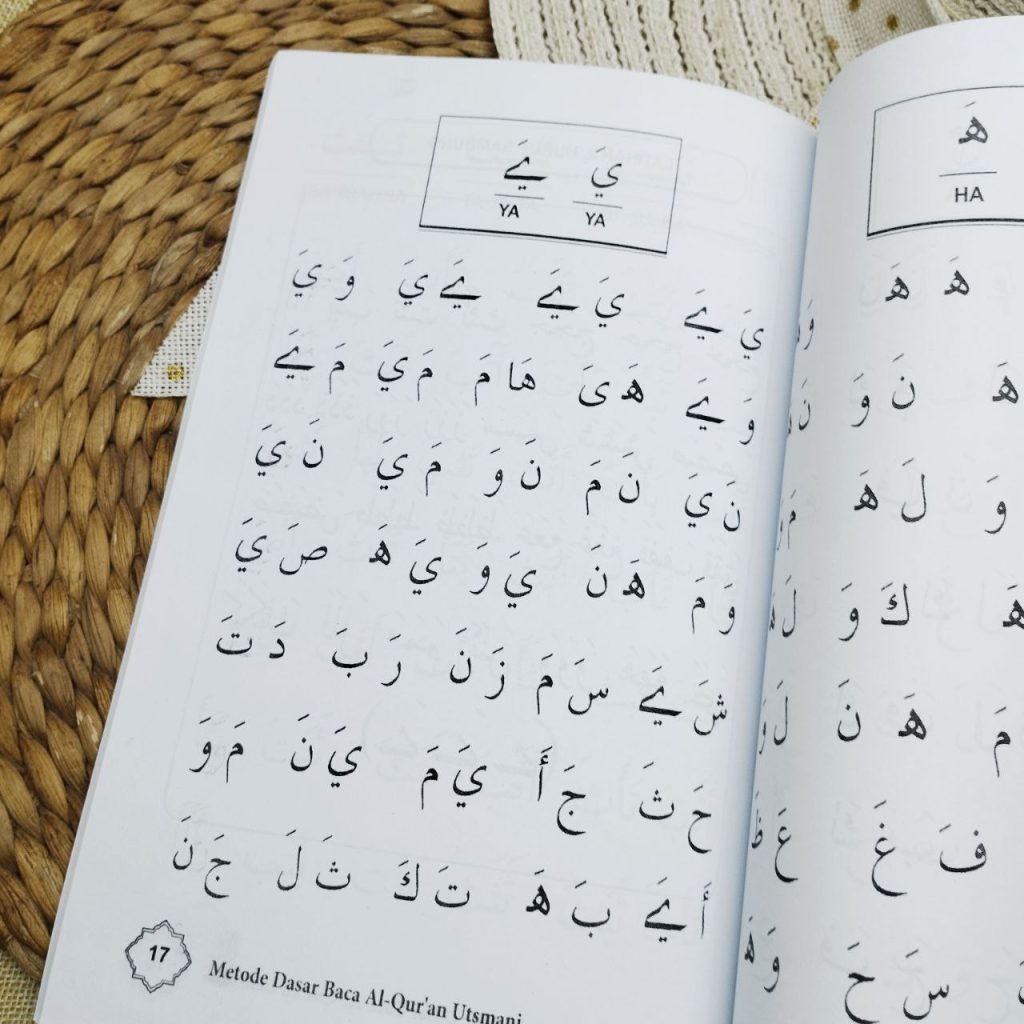 يَ ےَ
YA YA
يَ ےَ يَ ےَ ےَ يَ وَ يَ
وَ ےَ هَ ىَ هَا مَ مَ يَ مَ ےَ
نَ يَ نَ مَ نَ وَ مَ يَ نَ يَ
وَ مَ هَ نَ يَ وَ يَ هَ صَ يَ
شَ ےَ سَ مَ زَ نَ رَ بَ دَ تَ
حَ ثَ جَ أَ يَ مَ يَ نَ مَ وَ
أَ ےَ بَ هَ تَ كَ ثَ لَ جَ نَ
17
Metode Dasar Baca Al-Qur'an Utsmani
هَ
HA
هَ هَ
هَ نَ وَ نَ
وَ لَ هَ مَ
هَ كَ وَ لَ هَ
مَ هَ نَ لَ وَ
فَ غَ عَ ظَ
سَ حَ وَ هَ